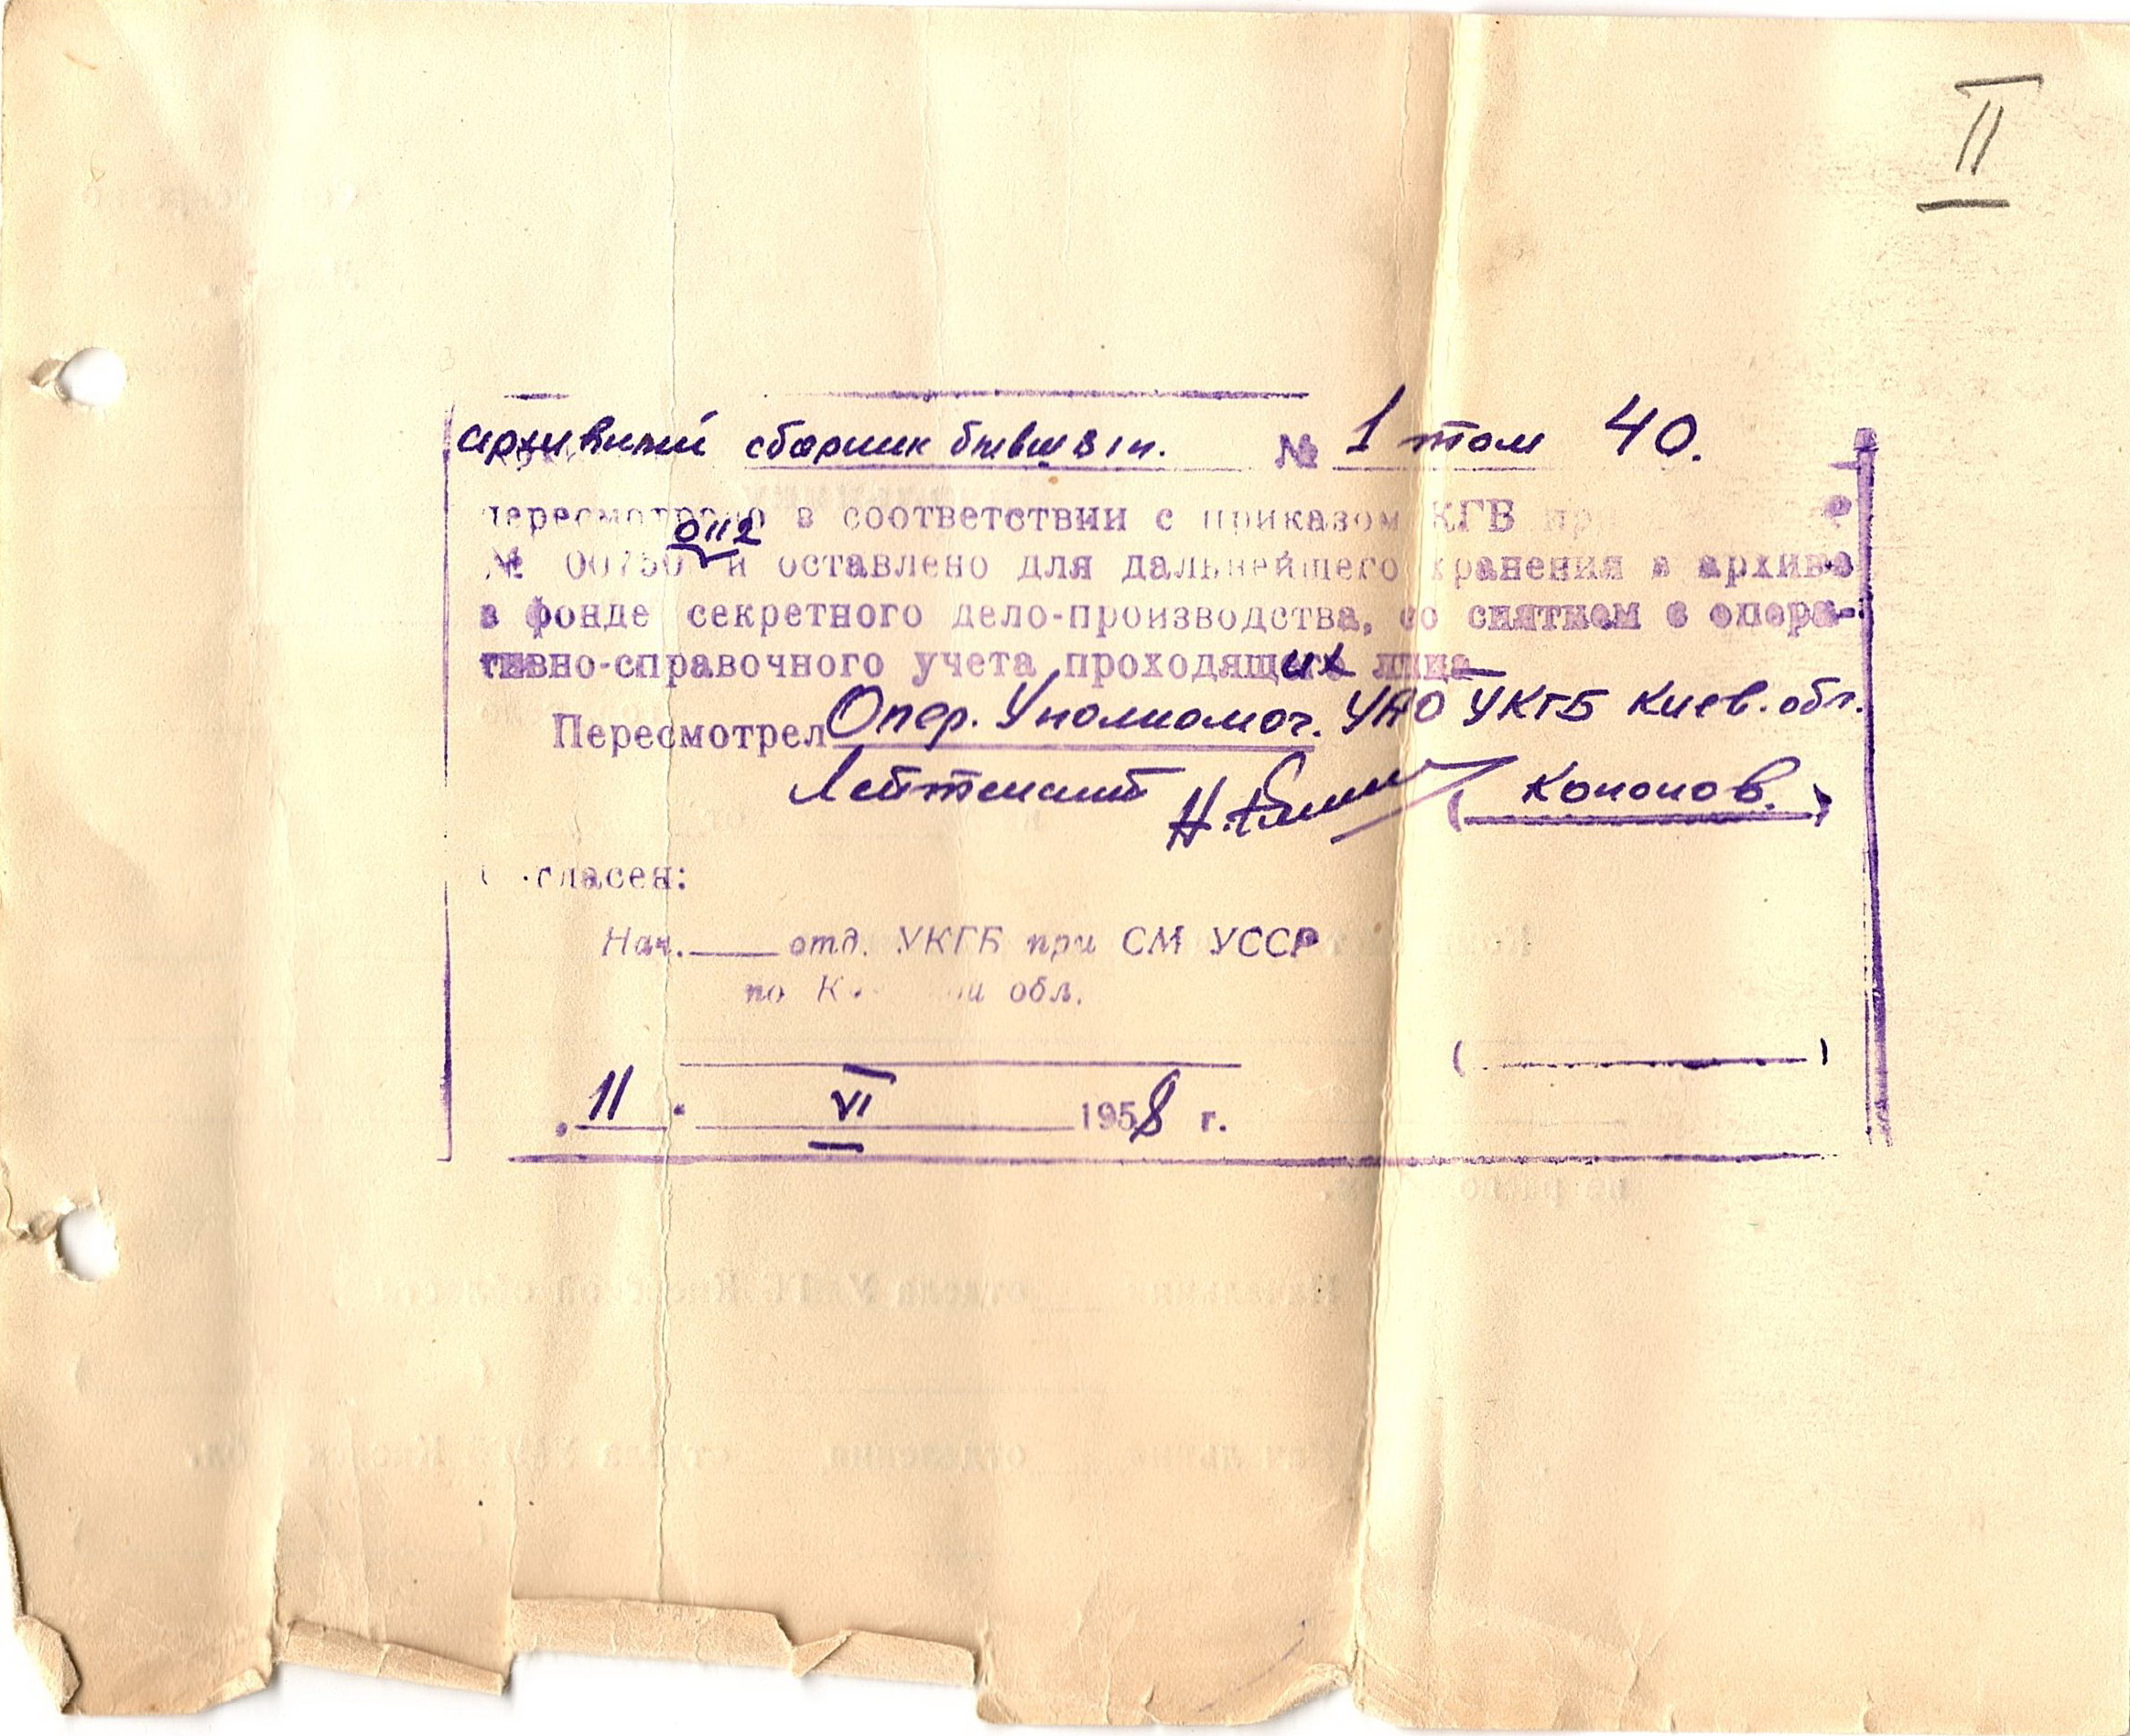 II
архивный сборник бывш 8 го. № 1 том 40.
пересмотрено в соответствии с приказом КГБ
0112
№ 00750 и оставлено для дальнейшего хранения в архиве
в фонде секретного дело-производства, со снятием с опера-
тивно-справочного учета проходящих лиц
Пересмотрел Опер. Уполномоч. УАО УКГБ Киев. обл.
Лейтенант (Кононов.)
Согласен:
Нач. ____ отд. УКГБ при СМ УССР
по К обл.
( )
„ 11 " VI 1958 г.